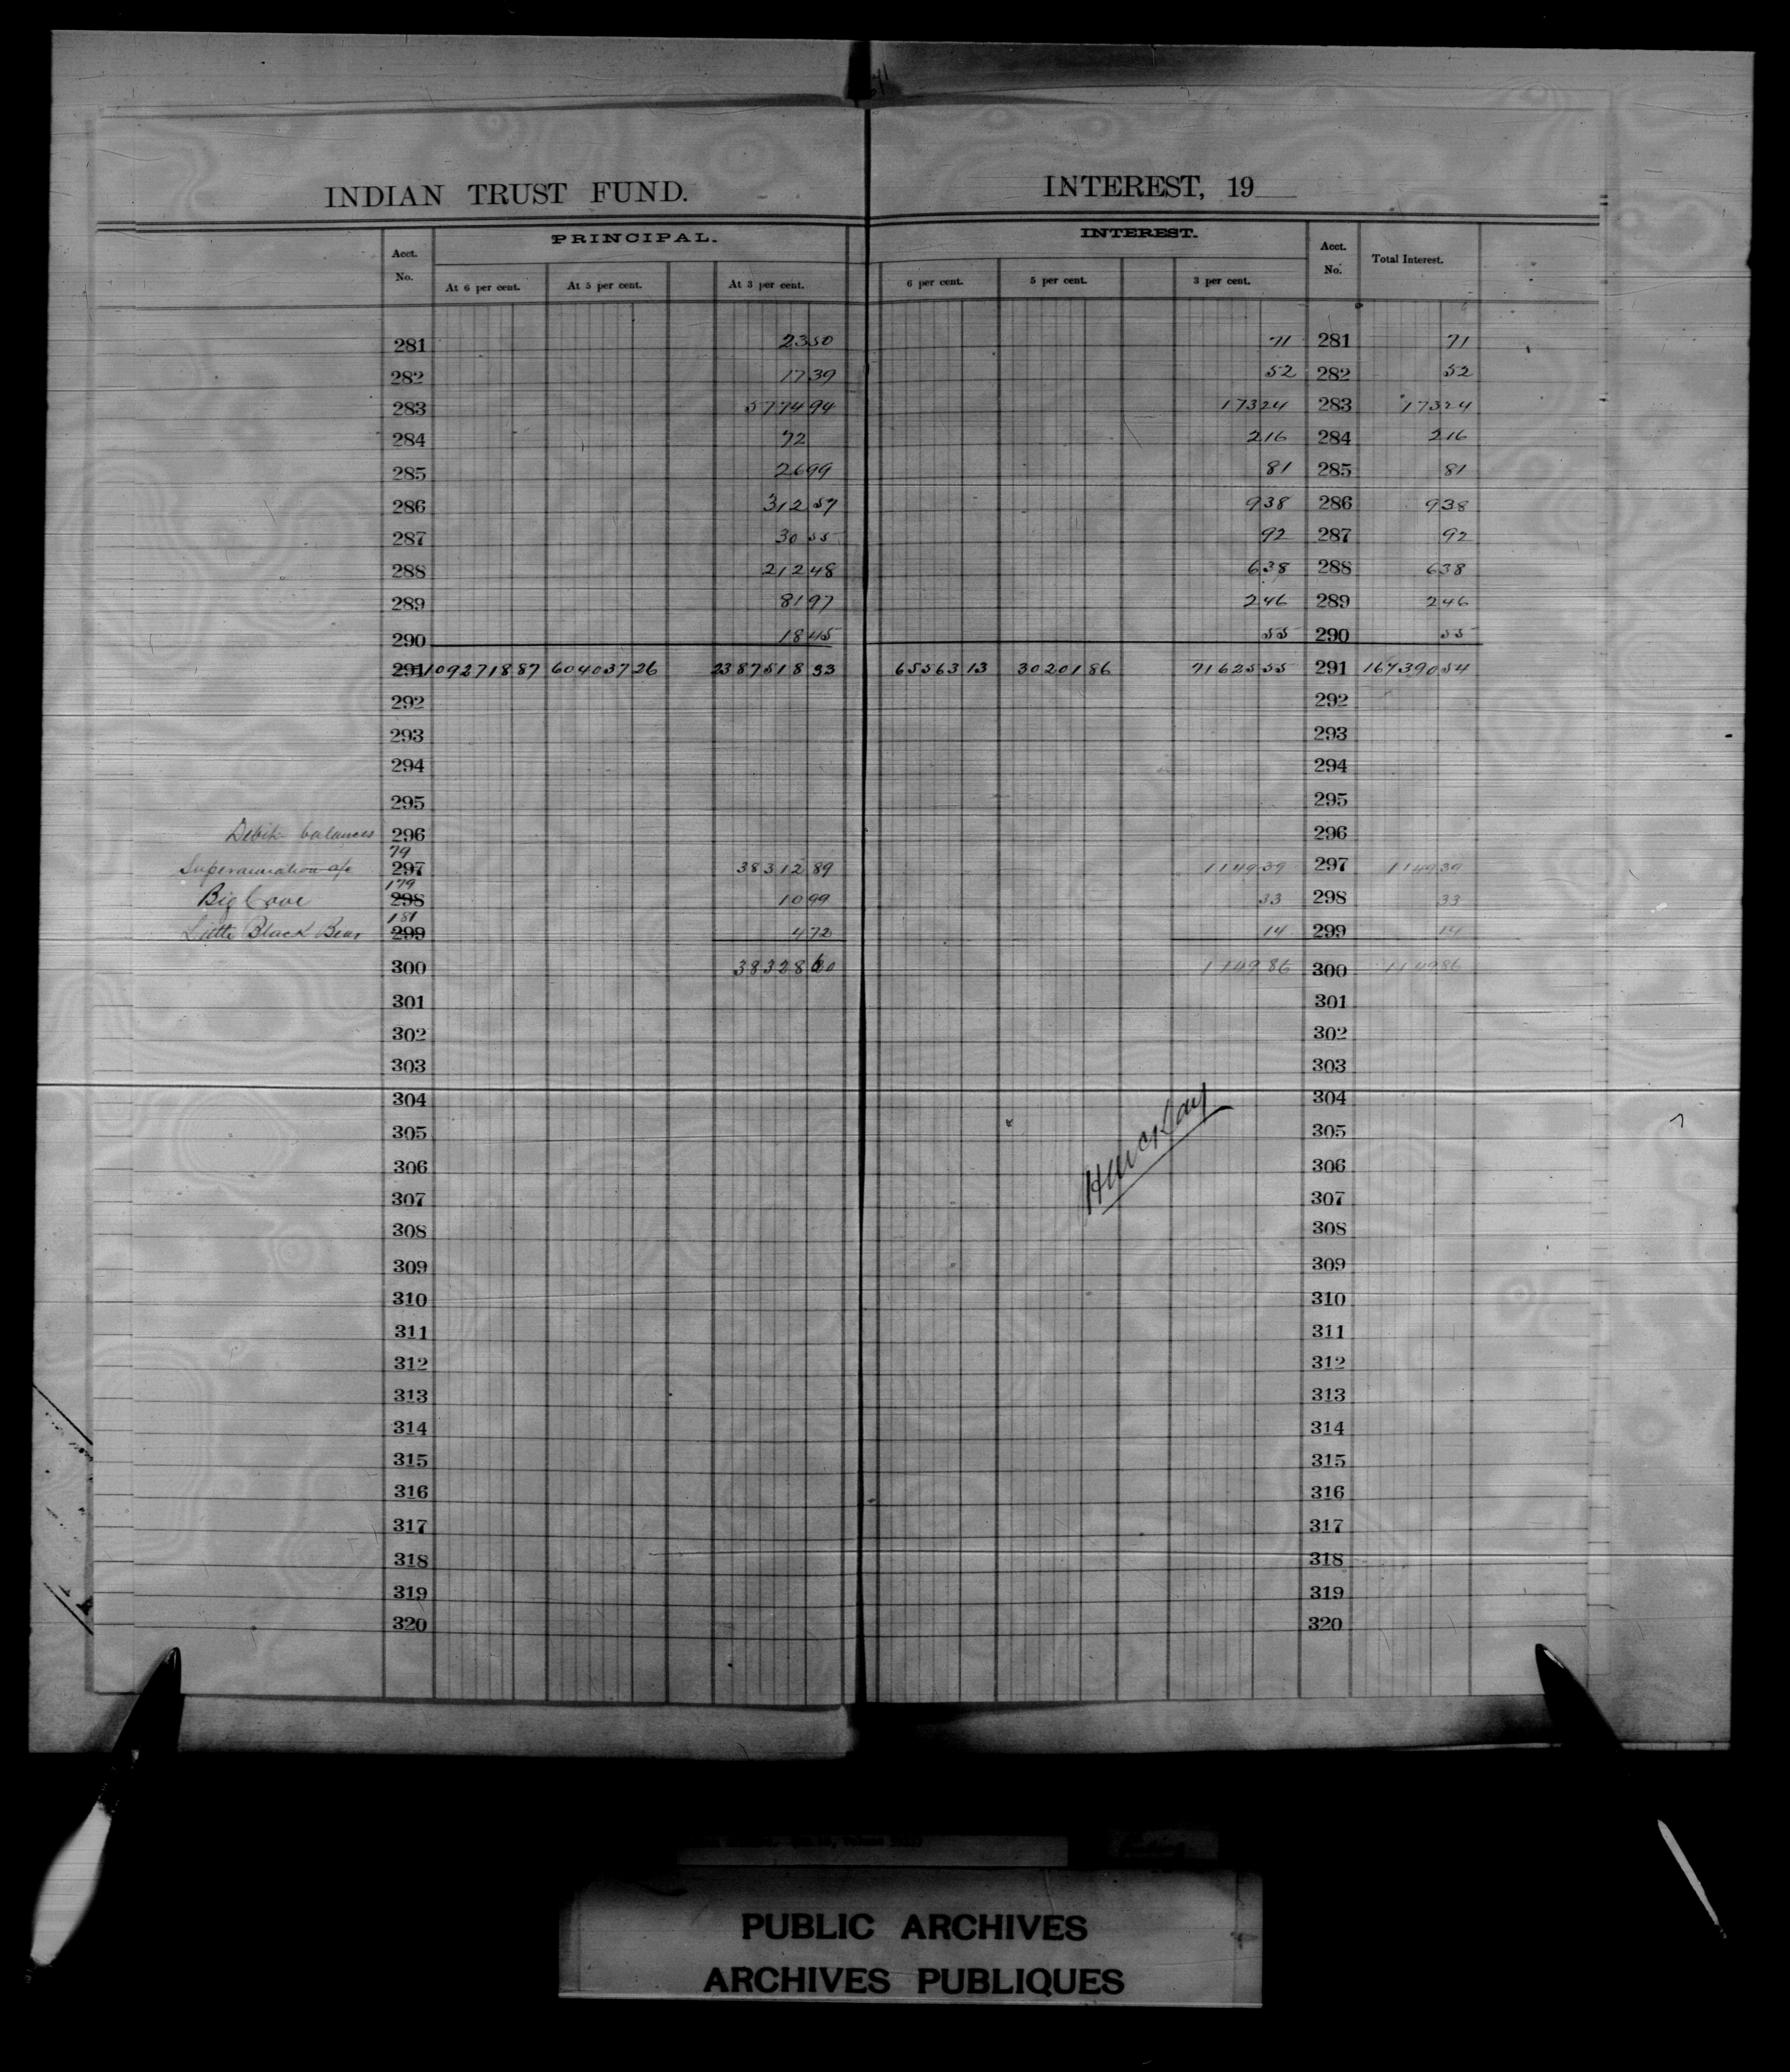 INDIAN TRUST FUND. INTEREST, 19
PRINCIPAL. INTEREST.
Acct. No. At 6 per cent. At 5 per cent. At 3 per cent. 6 per cent. 5 per cent. 3 per cent. Acct. No. Total Interest.
281 23 50 71 281 71
282 17 39 52 282 52
283 5774 94 173 24 283 173 24
284 72 2 16 284 2 16
285 26 99 81 285 81
286 312 57 9 38 286 9 38
287 30 55 92 287 92
288 212 48 6 38 288 6 38
289 81 97 2 46 289 2 46
290 18 45 55 290 55
291 1092718 87 604037 26 2387518 33 65563 13 30201 86 71625 55 291 167390 54
292 292
293 293
294 294
295 295
Debit balances 296 296
79
Superannuation a/c 297 38312 89 1149 39 297 1149 39
179
Big Cove 298 10 99 33 298 33
181
Little Black Bear 299 4 72 14 299 14
300 38328 60 1149 86 300 1149 86
301 301
302 302
303 303
304 304
305 305
306 306
307 307
308 308
309 309
310 310
311 311
312 312
313 313
314 314
315 315
316 316
317 317
318 318
319 319
320 320
PUBLIC ARCHIVES
ARCHIVES PUBLIQUES